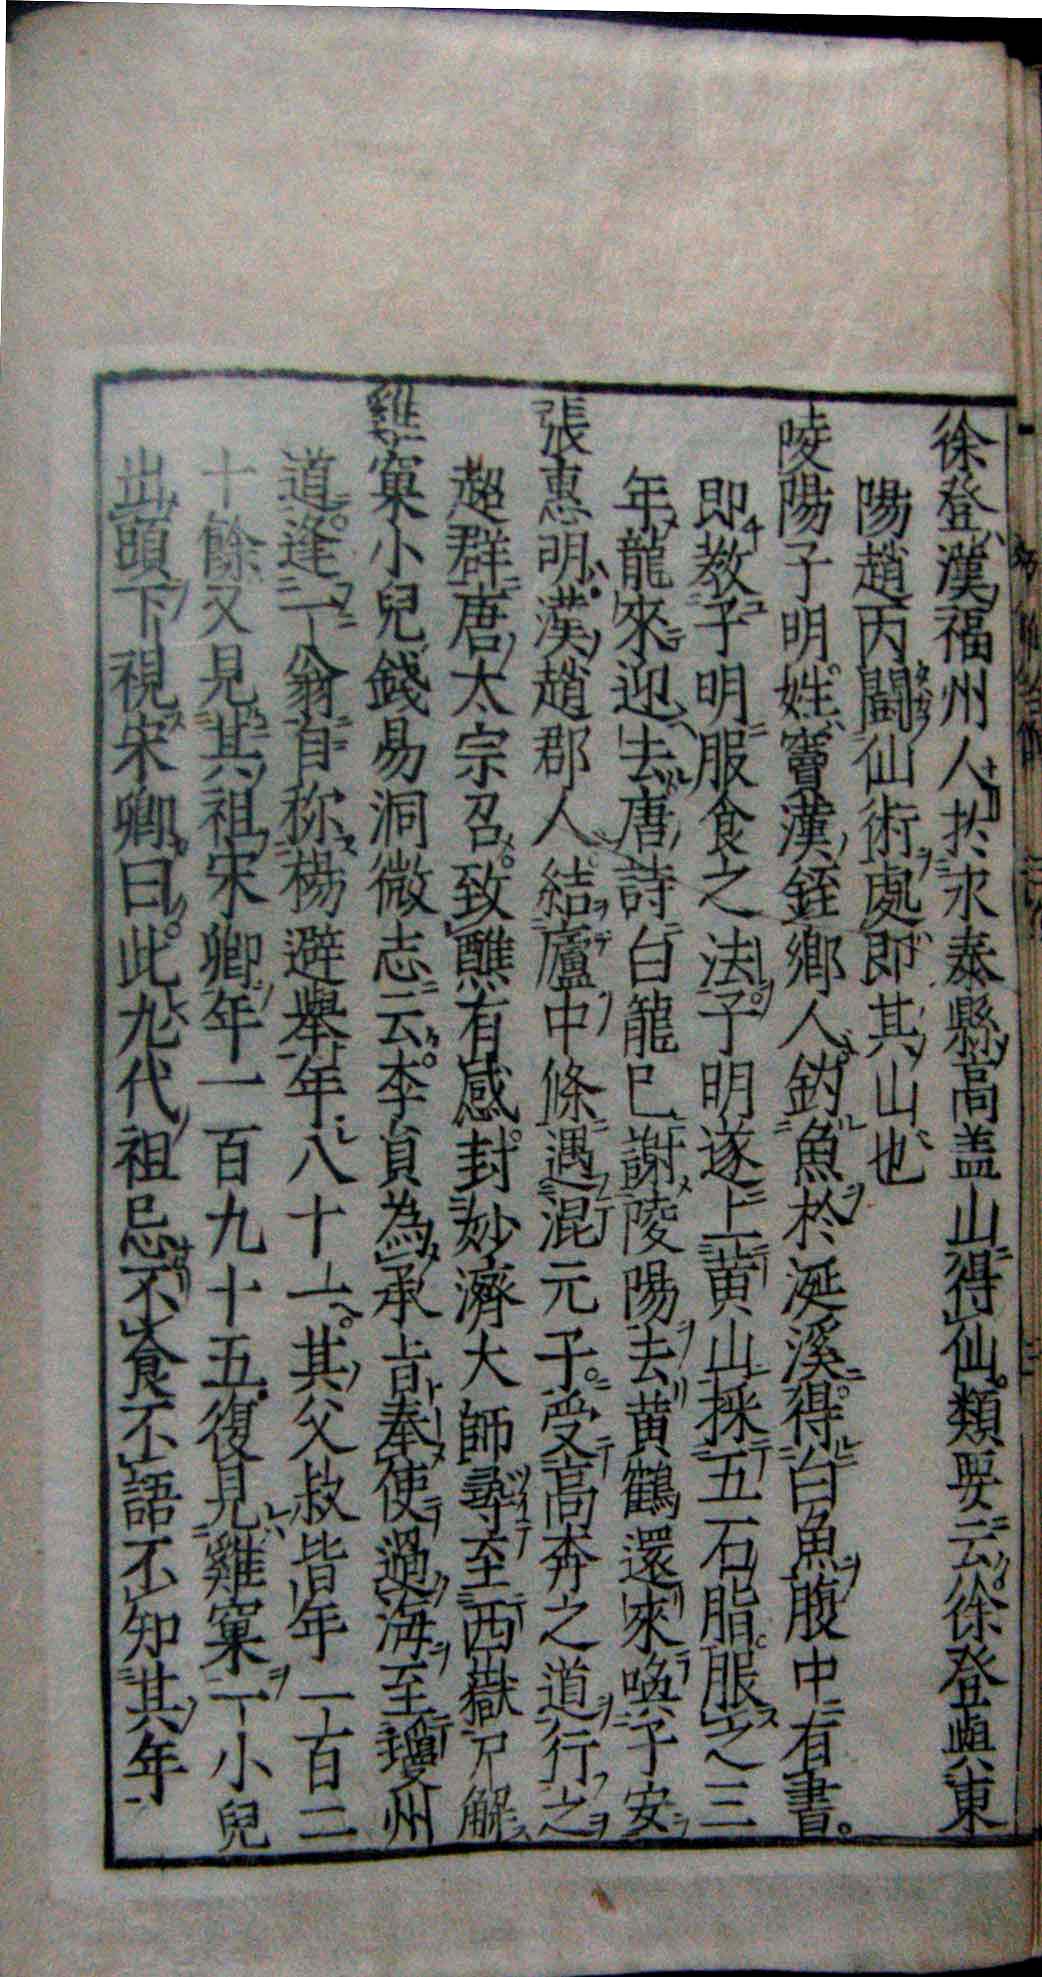 徐登漢福州人於永泰縣高盖山得仙類要云徐登與東
陽趙丙闘仙術處即其山也
陵陽子明姓竇漢銍鄉人釣魚於涎溪得白魚腹中有書
即教子明服食之法子明遂上黄山採五石脂服之三
年龍來迎去唐詩白龍已謝陵陽去黄鶴還來喚子安
張惠明漢趙郡人結廬中條遇混元子受高奔之道行之
超群唐太宗召致醮有感封妙濟大師尋至西嶽尸解
雞窠小兒錢易洞微志云李貞為承旨奉使過海至瓊州
道逢一翁自称楊避舉年八十一其父叔皆年一百二
十餘又見其祖宋卿年一百九十五復見雞窠一小兒
出頭下視宋卿曰此九代祖忌不食不語不知其年